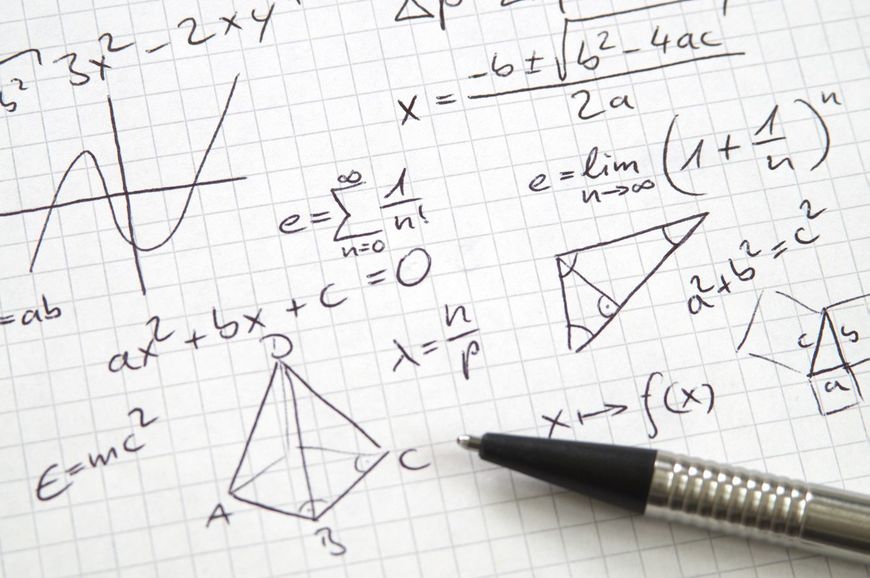 3x² - 2xy
b²
Δp
x = (-b ± √(b² - 4ac)) / 2a
e = lim n→∞ (1 + 1/n)ⁿ
e = ∑ n=0 ∞ 1/n!
a² + b² = c²
= ab
ax² + bx + c = 0
λ = n/p
c b
a
x ↦ f(x)
E = mc²
D
C
A
B